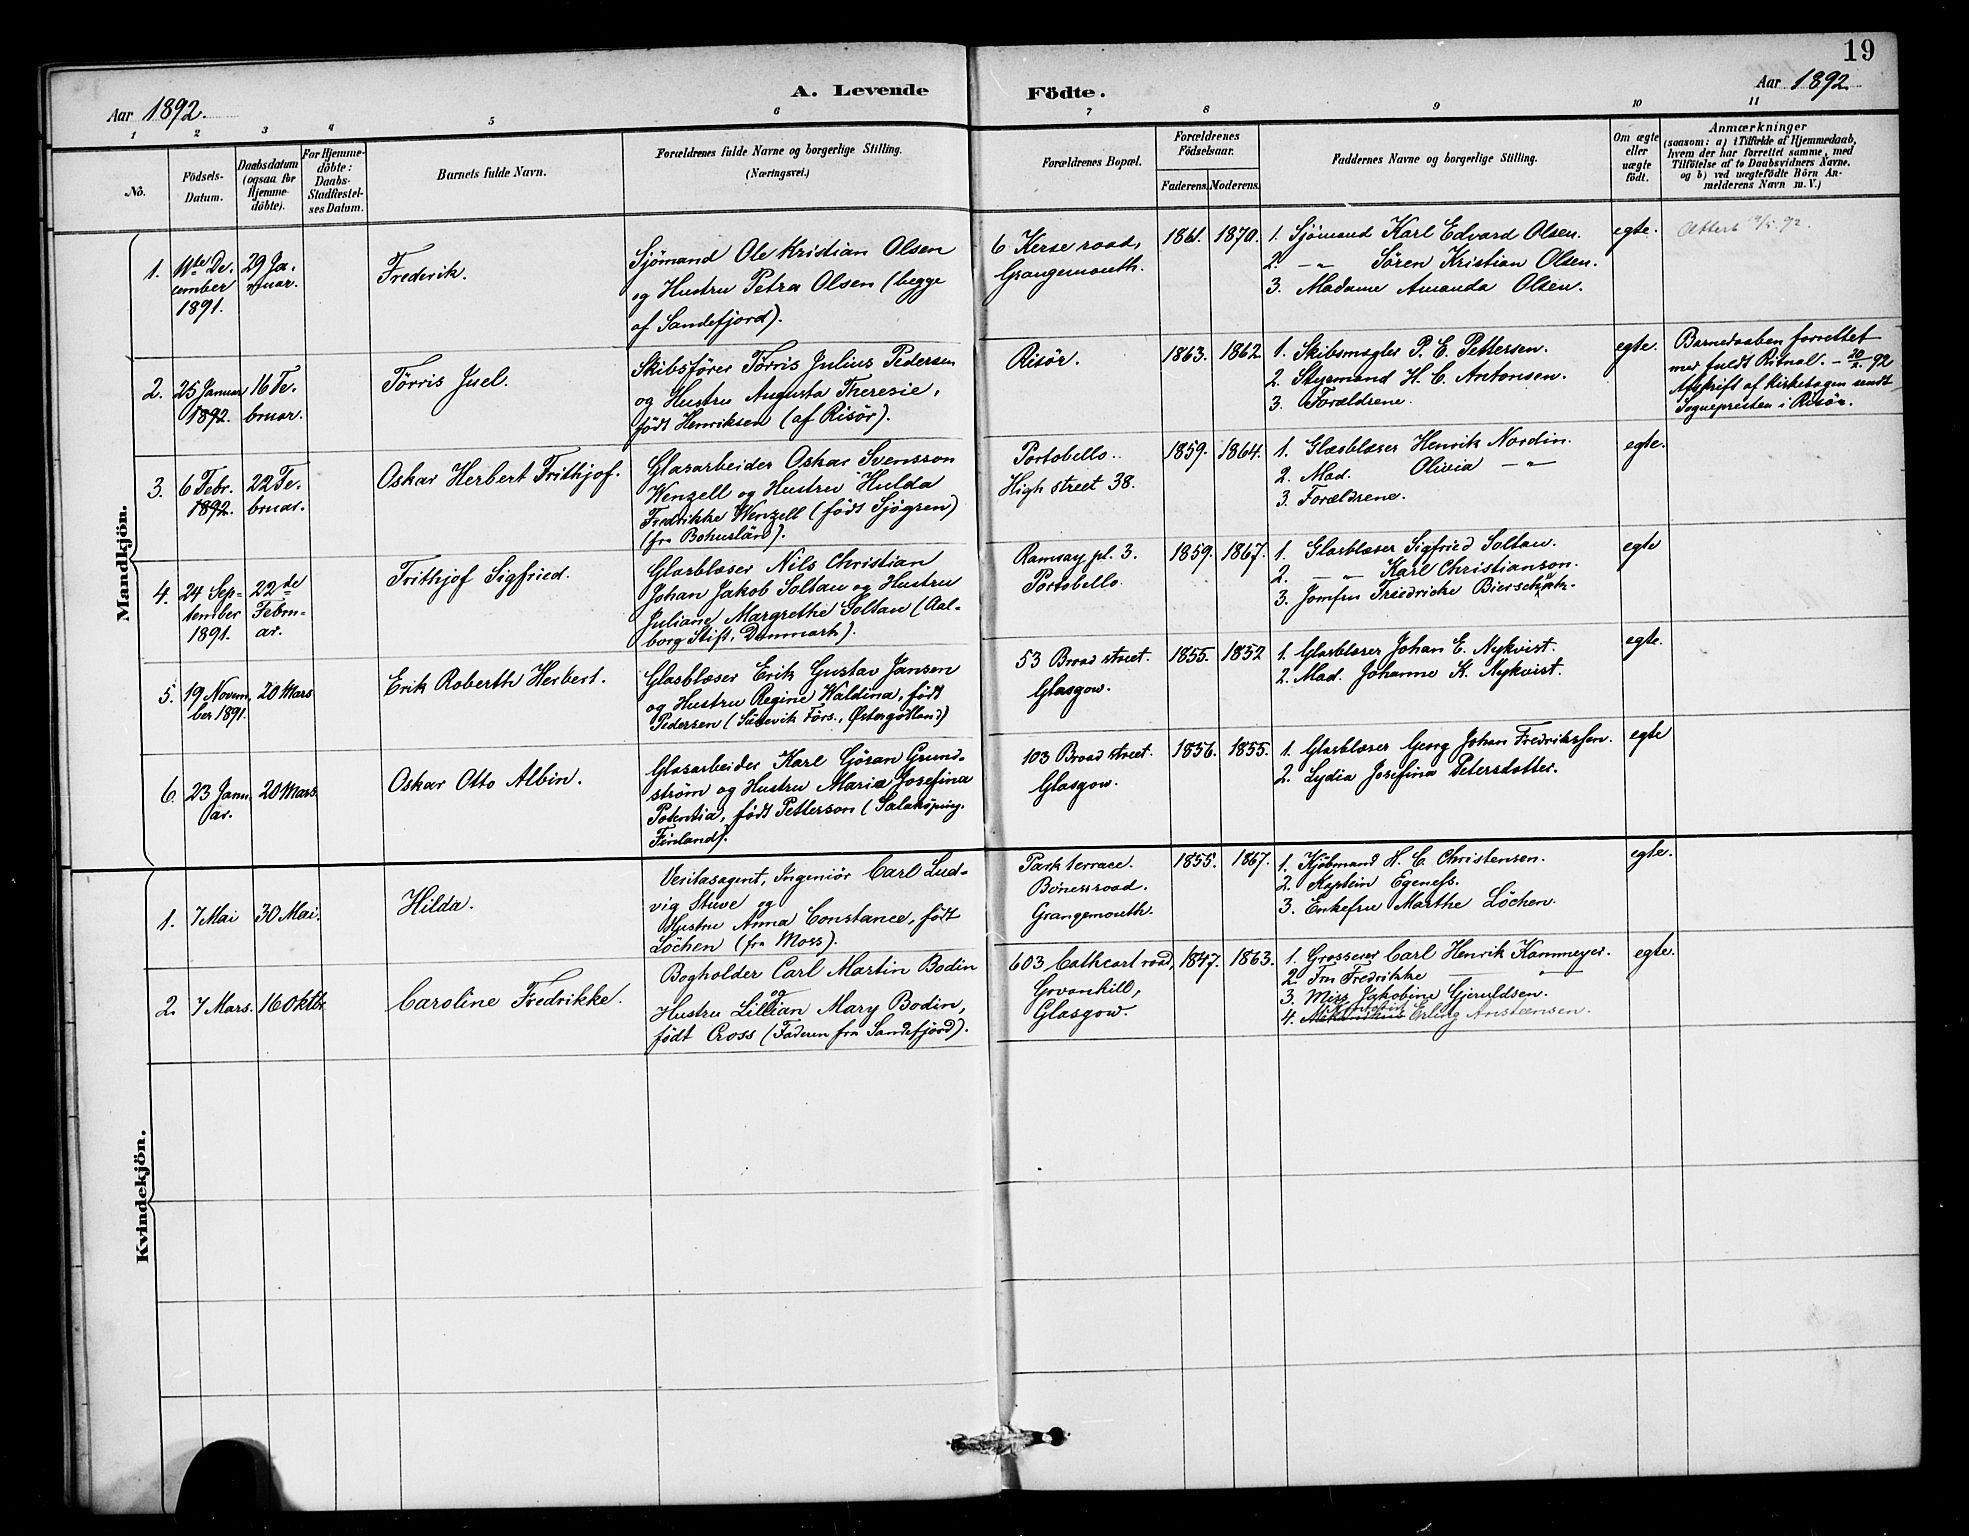 19
A. Levende Födte.
Aar 1892.
Aar 1892
1 2 3 4 5 6 7 8 9 10 11
Nö.
Födsels-
Datum.
Daabsdatum
(ogsaa for
Hjemme-
döbte).
For Hjemme-
döbte:
Daabs-
Stadfæstel-
ses Datum.
Barnets fulde Navn.
Forældrenes fulde Navne og borgerlige Stilling.
(Næringsvei.)
Forældrenes Bopæl.
Forældrenes
Födselsaar.
Faderens. Moderens.
Faddernes Navne og borgerlige Stilling.
Om ægte
eller
uægte
födt.
Anmærkninger
(saasom: a) i Tilfælde af Hjemmedaab,
hvem der har forrettet samme, med
Tilföielse af to Daabsvidners Navne,
og b) ved uægtefödte Börn An-
melderens Navn m. V.)
Mandkjön.
1.
11te De-
cember
1891.
29 Ja-
nuar.
Frederik.
Sjömand Ole Kristian Olsen
og Hustru Petra Olsen (begge
af Sandefjord).
6 Kerse road,
Grangemouth.
1861. 1870.
1. Sjömand Karl Edvard Olsen.
2. — „ Sören Kristian Olsen.
3. Madame Amanda Olsen.
egte.
Attest
2.
25 Januar
1892.
16 Fe-
bruar.
Törris Juel.
Skibsförer Törris Julius Pedersen
og Hustru Augusta Theresie,
födt Henriksen (af Risör).
Risör.
1863. 1862.
1. Skibsmægler P. E. Pettersen.
2. Styrmand H. C. Antonsen.
3. Forældrene.
egte.
Barnedaaben forrettet
med fuldt Ritual. – 20/2 92
Afskrift af Kirkebogen sendt
Sognepresten i Risör.
3.
6 Febr.
1892.
22 Fe-
bruar.
Oskar Herbert Frithjof.
Glasarbeider Oskar Svensson
Wenzell og Hustru Hulda
Fredrikke Wenzell (födt Sjögren)
(fra Bohuslän).
Portobello.
High street 38.
1859. 1864.
1. Glasblæser Henrik Nordin.
2. Mad. Olivia — „
3. Forældrene.
egte.
4.
24 Sep-
tember
1891.
22de
Febru-
ar.
Frithjof Sigfried.
Glasblæser Nils Christian
Johan Jakob Soltau og Hustru
Juliane Margrethe Soltau (Aal-
borg Stift, Danmark).
Ramsay pl. 3.
Portobello.
1859. 1867.
1. Glasblæser Sigfried Soltau.
2. — „ Karl Christianson.
3. Jomfru Friedricke
egte
5.
19 Novem-
ber 1891.
20 Mars
Erik Roberth Herbert.
Glasblæser Erik Gustav Jansen
og Hustru Regine Waldina, födt
Pedersen ( Förs., Östergötland)
53 Broad street.
Glasgow.
1855. 1852
1. Glasblæser Johan E. Nykvist.
2. Mad. Johanne K. Nykvist.
egte.
6.
23 Janu-
ar.
20 Mars.
Oskar Otto Albin.
Glasarbeider Karl Göran Grund-
ström og Hustru Maria Josefina
Potentia, födt Petterson (
Finland).
103 Broad street.
Glasgow.
1856. 1855.
1. Glasblæser Georg Johan Fredrikssen.
2. Lydia Josefina Petersdotter.
egte
Kvindekjön.
1.
7 Mai
30 Mai.
Hilda.
Veritasagent, Ingeniör Carl Lud-
vig Stuve og
Hustru Anna Constance, födt
Löchen (fra Moss).
Park terrace.
Bonessroad.
Grangemouth.
1855. 1867.
1. Kjöbmand H. C. Christensen.
2. Kaptein Egeness.
3. Enkefru Marthe Löchen.
egte.
2.
7 Mars.
16 Oktbr.
Caroline Fredrikke.
Bogholder Carl Martin Bodin
og
Hustru Lillian Mary Bodin,
födt Cross (Faderen fra Sandefjord).
603 Cathcart road,
Govanhill,
Glasgow.
1847. 1863.
1. Grosserer Carl Henrik Kammeyer.
2. Fru Fredrikke — „
3. Miss Jakobine Gjeruldsen.
4. Erling Anstensen.
egte.